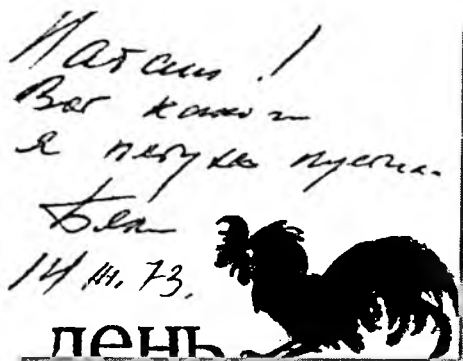 Наташ!
Вот какого
я петуха пустил.
14 III. 73.
день